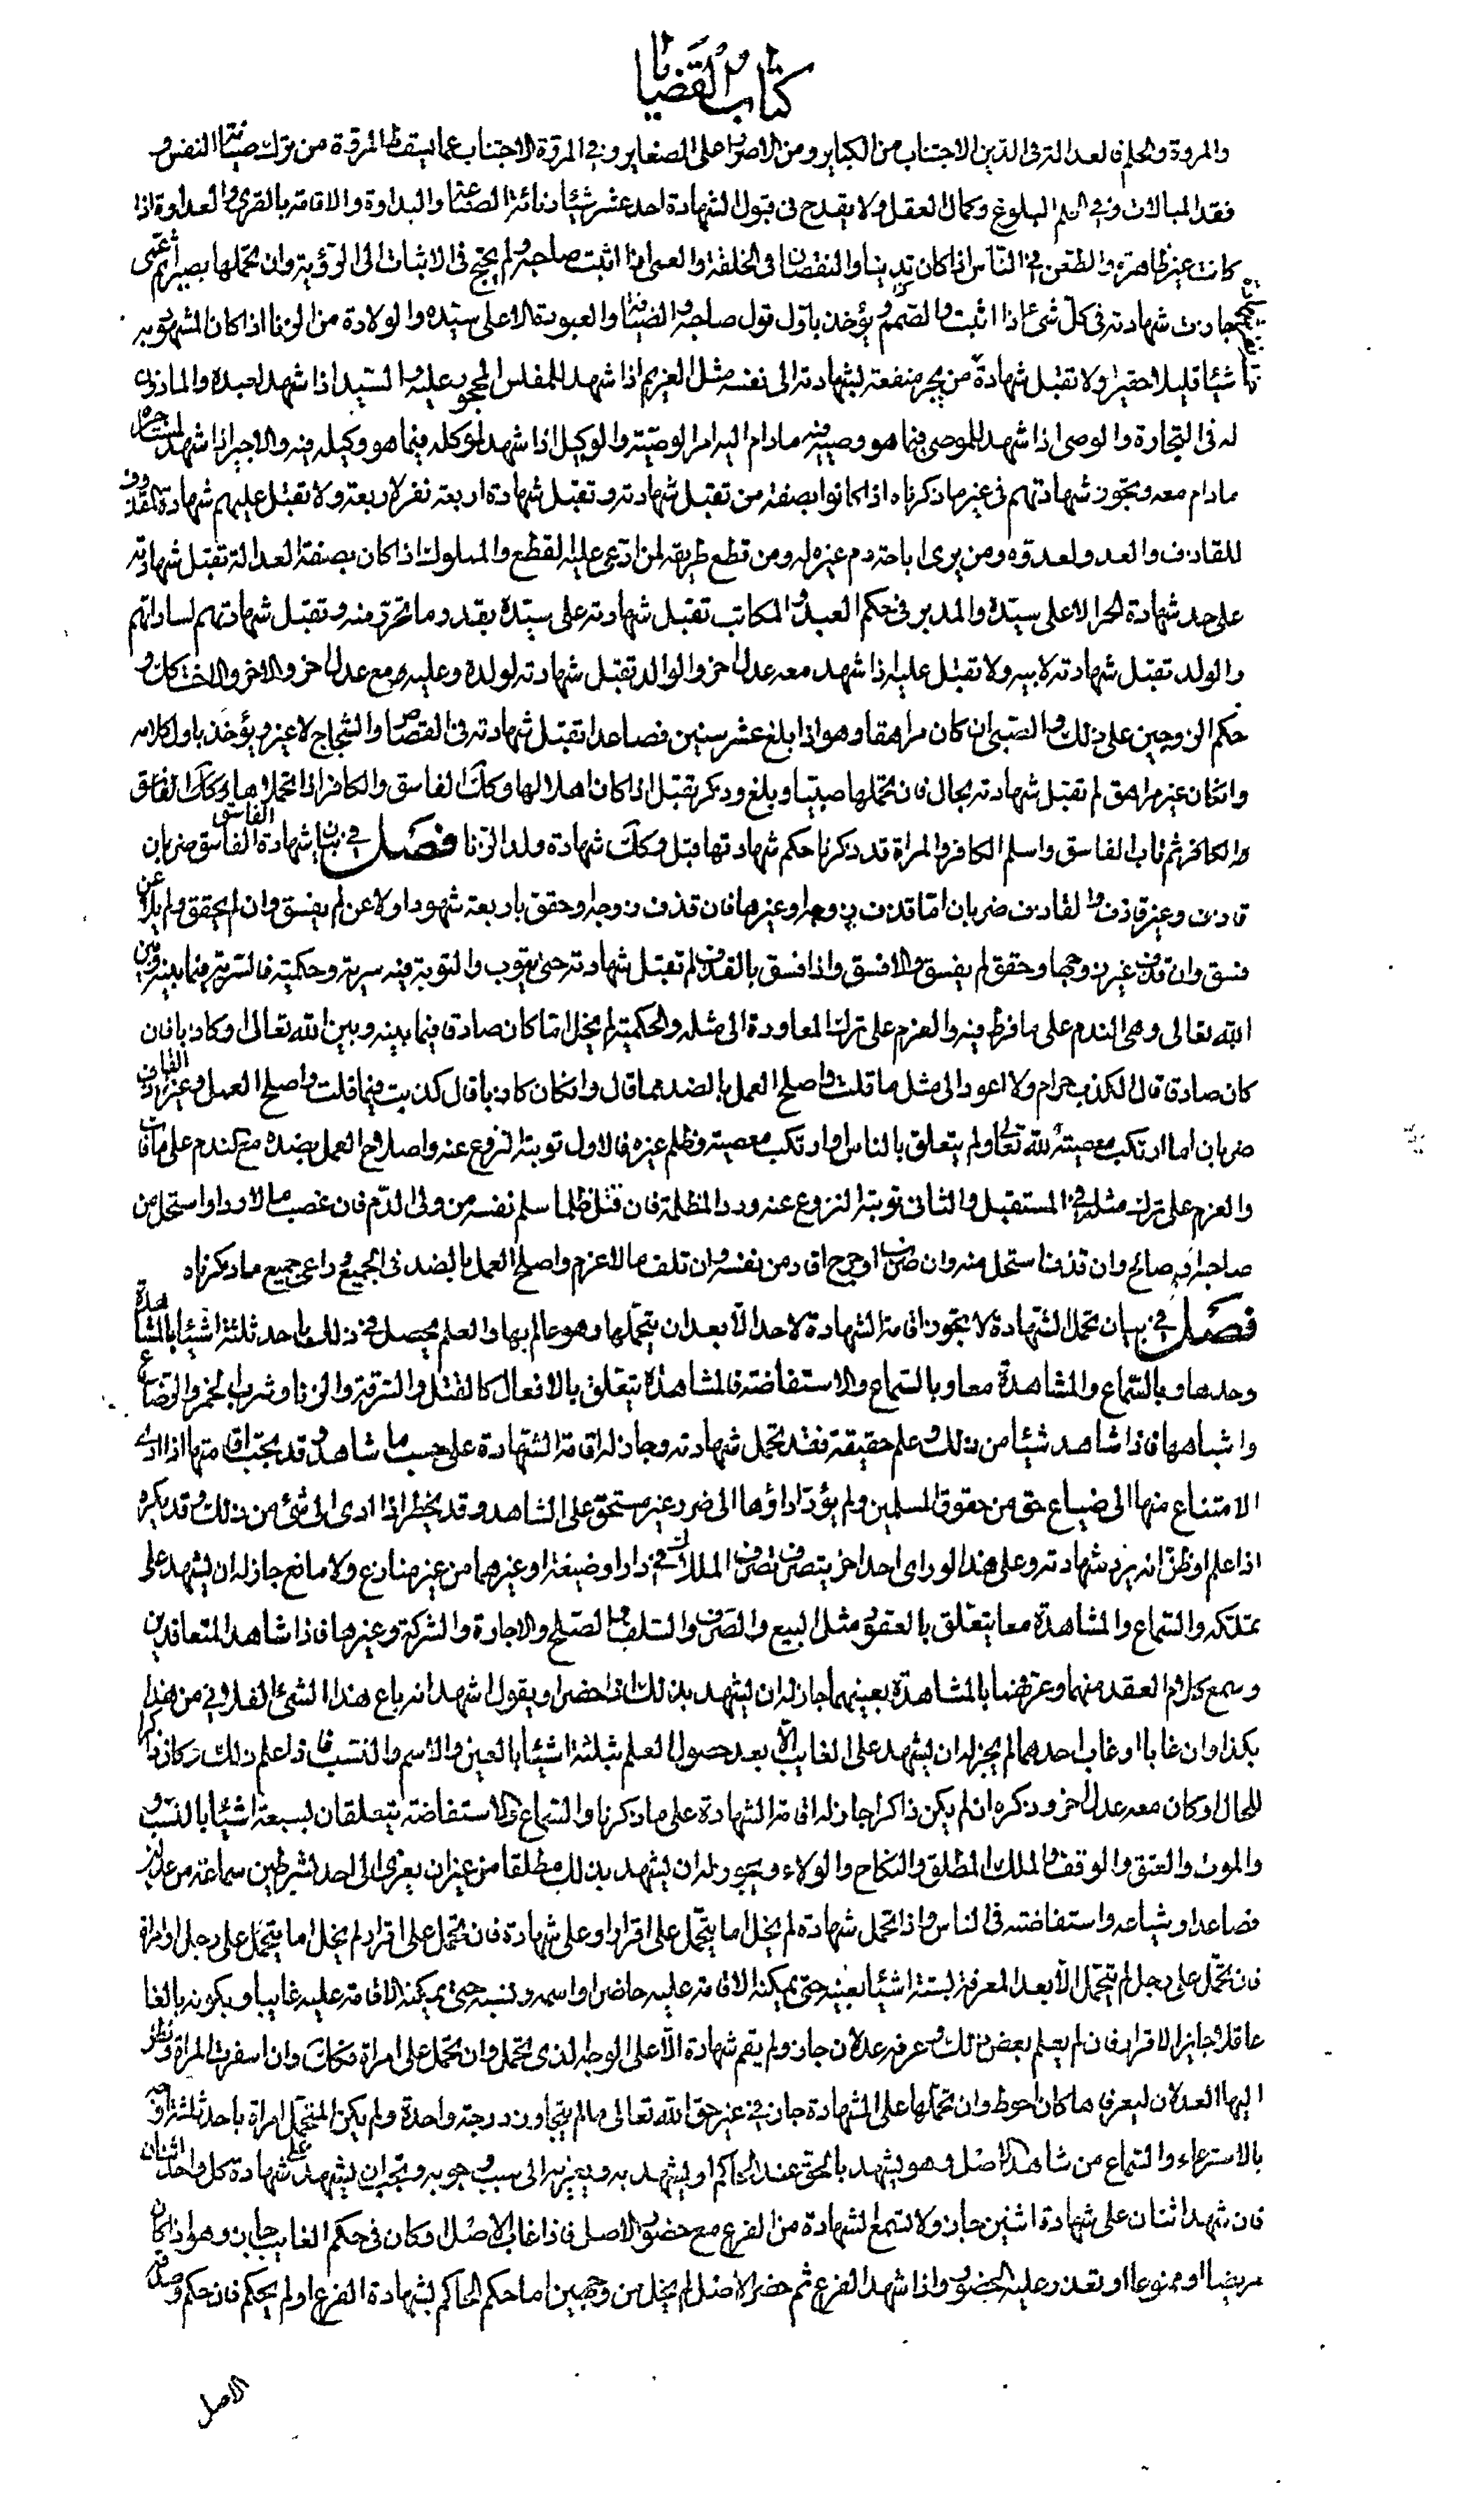 كتاب القضايا
والمروة والحلم فالعدالة في الدين الاجتناب من الكباير ومن الاصرار على الصغاير وفي المروة الاجتناب عما يسقط المروة من ترك صيانة النفس و
فقد المبالات وفي الحلم البلوغ وكمال العقل ولا يقدح في قبول الشهادة احد عشر شيئا دنائة الصناعة والبداوة والاقامة بالقرى والعداوة اذا
كانت غير ظاهرة والطعن في الناس اذا كان تدينا والنقصان في الخلقة والعمى اذا اثبت صاحبه ولم يحتج في الاثبات الى الرؤية وان تحملها بصيرا ثم عمى
جازت شهادته في كل شئ اذا اثبت والصمم ويؤخذ باول قول صاحبه والضيافة والعبودة الا على سيده والولادة من الزنا اذا كان المشهود به
شيئا قليلا حقيرا ولا تقبل شهادة من يجر منفعة لشهادته الى نفسه مثل الغريم اذا شهد للمفلس المحجور عليه والسيد اذا شهد لعبده والماذون
له في التجارة والوصى اذا شهد للموصى فيما هو وصيه فيه مادام اليه امر الوصية والوكيل اذا شهد لموكله فيما هو وكيله فيه والاجير اذا شهد لمستاجره
مادام معه ويجوز شهادتهم في غير ما ذكرناه اذا كانوا بصفة من تقبل شهادته وتقبل شهادة اربعة نفر لاربعة ولا تقبل عليهم شهادة المقذوف
للقاذف والعدو لعدوه ومن يرى اباحة دم غيره له ومن قطع طريقه لمن ادعى عليه القطع والمملوك اذا كان بصفة العدالة تقبل شهادته
على حد شهادة الحر الا على سيده والمدبر في حكم العبد والمكاتب تقبل شهادته على سيده بقدر ما تحرر منه وتقبل شهادتهم لساداتهم
والولد تقبل شهادته لابيه ولا تقبل عليه اذا شهد معه عدل اخر والوالد تقبل شهادته لولده وعليه مع عدل اخر والاخ والاخت كذلك و
حكم الزوجين على ذلك والصبى ان كان مراهقا وهو اذا بلغ عشر سنين فصاعدا تقبل شهادته في القصاص والشجاج لا غير ويؤخذ باول كلامه
وان كان غير مراهق لم تقبل شهادته بحال فان تحملها صبيا وبلغ وذكر تقبل اذا كان اهلا لها وكذلك الفاسق والكافر اذا تحملاها وكذلك الفاسق
والكافر ثم تاب الفاسق واسلم الكافر والمراة قد ذكرنا حكم شهادتها قبل وكذلك شهادة ولد الزنا فصل في بيان شهادة الفاسق الفاسق ضربان
قاذف وغير قاذف والقاذف ضربان اما قذف زوجه او غيرها فان قذف زوجه وحقق باربعة شهود او لاعن لم يفسق وان لم يحقق ولم يلاعن
فسق وان قذف غير زوجها وحقق لم يفسق والا فسق واذا فسق بالقذف لم تقبل شهادته حتى يتوب والتوبة فيه سرية وحكمية فالسرية فيما بينه وبين
الله تعالى وهى الندم على ما فرط فيه والعزم على ترك المعاودة الى مثله والحكمية لم يخل اما كان صادقا فيما بينه وبين الله تعالى او كاذبا فان
كان صادقا قال الكذب حرام ولا اعود الى مثل ما قلت واصلح العمل بالضد مما قال وان كان كاذبا قال كذبت فيما قلت واصلح العمل وغير القاذف
ضربان اما ارتكب معصية لله تعالى ولم يتعلق بالناس او ارتكب معصية وظلم غيره فالاول توبته النزوع عنه واصلاح العمل بضده مع الندم على ما فات
والعزم على ترك مثله في المستقبل والثانى توبته النزوع عنه ورد المظلمة فان قتل ظلما سلم نفسه من ولى الدم فان غصب مالا رد او استحل من
صاحبه او صالح وان قذف استحل منه وان ضرب او جرح اقاد من نفسه وان تلف مالا غرم واصلح العمل بالضد في الجميع وراعى جميع ما ذكرناه
فصل في بيان تحمل الشهادة لا يجوز اقامة الشهادة لاحد الا بعد ان يتحملها وهو عالم بها والعلم يحصل في ذلك باحد ثلثة اشياء بالمشاهدة
وحدها وبالسماع والمشاهدة معا وبالسماع والاستفاضة فالمشاهدة يتعلق بالافعال كالقتل والسرقة والزنا وشرب الخمر والرضاع
واشباهها فاذا شاهد شيئا من ذلك وعلم حقيقة فقد تحمل شهادته وجاز له اقامة الشهادة على حسب ما شاهد وقد يجب اقامتها اذا ادى
الامتناع منها الى ضياع حق من حقوق المسلمين ولم يؤد اداؤها الى ضرر غير مستحق على الشاهد وقد يخطر اذا ادى الى شئ من ذلك وقد يكره
اذا علم او ظن انه يرد شهادته وعلى هذا لو راى احدا اخر يتصرف تصرف الملاك في دار او ضيعة او غيرهما من غير منازع ولا مانع جاز له ان يشهد على
تملكه والسماع والمشاهدة معا يتعلق بالعقود مثل البيع والصرف والسلف والصلح والاجارة والشركة وغيرها فاذا شاهد المتعاقدين
وسمع كلام العقد منهما وعرفهما بالمشاهدة بعينهما جاز له ان يشهد بذلك اذا حضرا ويقول اشهد انه باع هذا الشئ الفلاني من هذا
بكذا وان غابا او غاب احدهما لم يجز له ان يشهد على الغايب الا بعد حصول العلم بثلثة اشياء بالعين والاسم والنسب فاذا علم ذلك وكان ذاكرا
للحال او كان معه عدل اخر وذكره ان لم يكن ذاكرا جاز له اقامة الشهادة على ما ذكرنا والسماع والاستفاضة يتعلقان بسبعة اشياء بالنسب و
والموت والعتق والوقف والملك المطلق والنكاح والولاء ويجوز له ان يشهد بذلك مطلقا من غير ان يعزى الى احد بشرطين سماعه من عدلين
فصاعدا وشياعه واستفاضته في الناس واذا تحمل شهادة لم يخل اما يتحمل على اقرار او على شهادة فان تحمل على اقرار لم يخل اما يتحمل على رجل او امراة
فان تحمل على رجل لم يتحمل الا بعد المعرفة بستة اشياء بعينه حتى يمكنه الاقامة عليه حاضرا واسمه ونسبه حتى يمكنه الاقامة عليه غايبا وبكونه بالغا
عاقلا جايز الاقرار فان لم يعلم بعض ذلك وعرفه عدلان جاز ولم يقم شهادة الا على الوجه الذى تحمل وان تحمل على امراة فكذلك وان اسفرت المراة ونظر
اليها العدلان ليعرفاها كان احوط وان تحملها على الشهادة جاز في غير حق الله تعالى ما لم يتجاوز درجة واحدة ولم يكن المتحمل امراة باحد ثلثة
بالاسترعاء والسماع من شاهد الاصل وهو يشهد بالحق عند الحاكم او يشهد به ويعزيه الى سبب وجوبه ويجب ان يشهد على شهادة كل واحد اثنان
فان شهد اثنان على شهادة اثنين جاز ولا تسمع الشهادة من الفرع مع حضور الاصل فاذا غاب الاصل او كان في حكم الغايب جاز وهو اذا كان
مريضا او ممنوعا او تعذر عليه الحضور واذا شهد الفرع ثم حضر الاصل لم يخل من وجهين اما حكم الحاكم بشهادة الفرع او لم يحكم فان حكم وصدقه
الاصل